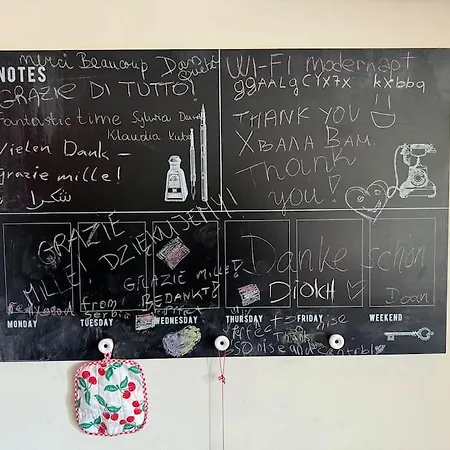 merci Beaucoup Dan
NOTES
GRAZIE DI TUTTO!
Fantastic time Sylwia
Klaudia Kuba
Vielen Dank -
grazie mille!
شكرا
WI-FI modernapt
ggAALgCYX7X kxbbq
THANK YOU
ХВАЛА ВАМ
Thank
you!
GRAZIE
MILLE!
DZIĘKUJEMY!
GRAZIE Mille!
BEDANKT!
Danke schön
from
Serbia
MONDAY
TUESDAY
WEDNESDAY
THURSDAY
FRIDAY
WEEKEND
Perfect
Thank